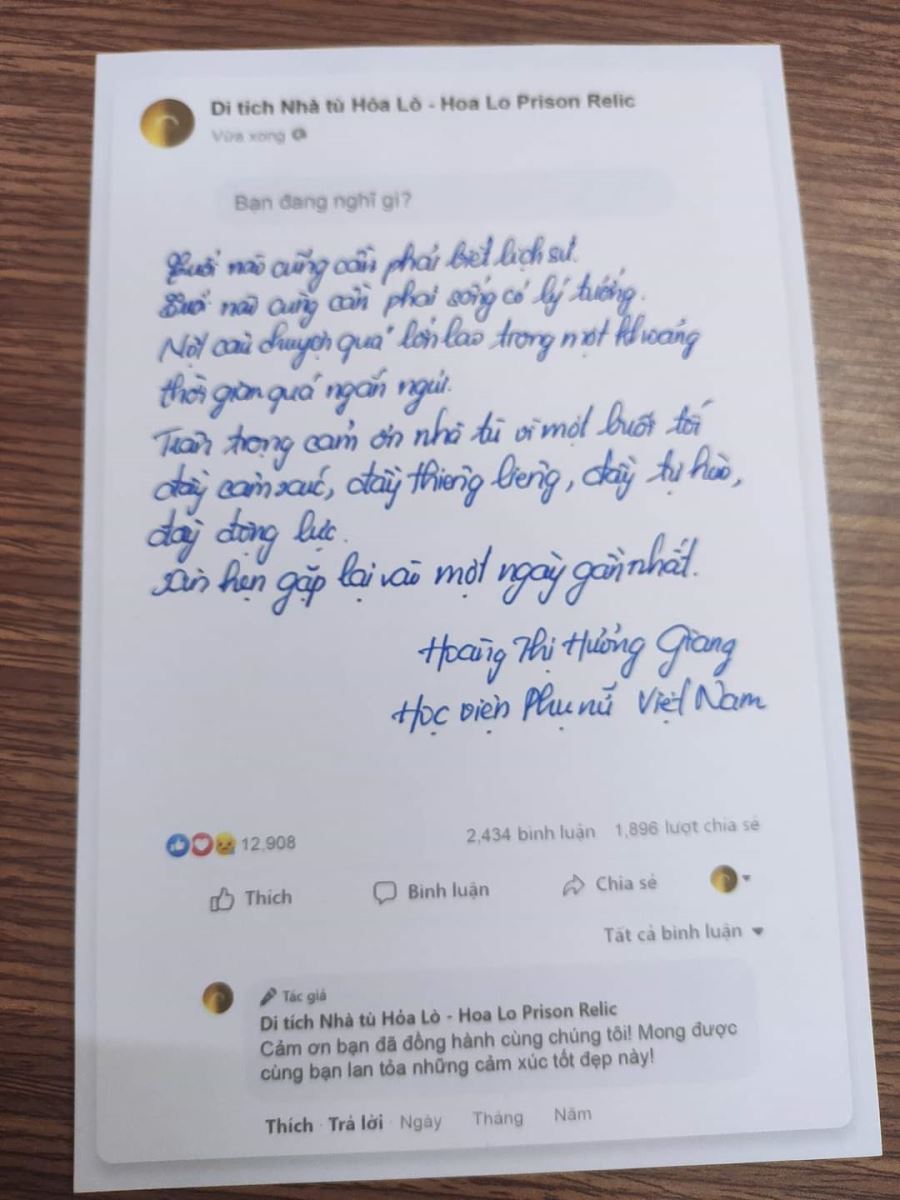 Di tích Nhà tù Hỏa Lò - Hoa Lo Prison Relic
Vừa xong
Bạn đang nghĩ gì?
Tuổi nào cũng cần phải biết lịch sử.
Tuổi nào cũng cần phải sống có lý tưởng.
Một câu chuyện quá lớn lao trong một khoảng
thời gian quá ngắn ngủi.
Trân trọng cảm ơn nhà tù vì một buổi tối
đầy cảm xúc, đầy thiêng liêng, đầy tự hào,
đầy động lực.
Xin hẹn gặp lại vào một ngày gần nhất.
Hoàng Thị Hương Giang
Học viện Phụ nữ Việt Nam
12,908
2,434 bình luận 1,896 lượt chia sẻ
Thích Bình luận Chia sẻ
Tất cả bình luận
Tác giả
Di tích Nhà tù Hỏa Lò - Hoa Lo Prison Relic
Cảm ơn bạn đã đồng hành cùng chúng tôi! Mong được
cùng bạn lan tỏa những cảm xúc tốt đẹp này!
Thích · Trả lời · Ngày Tháng Năm